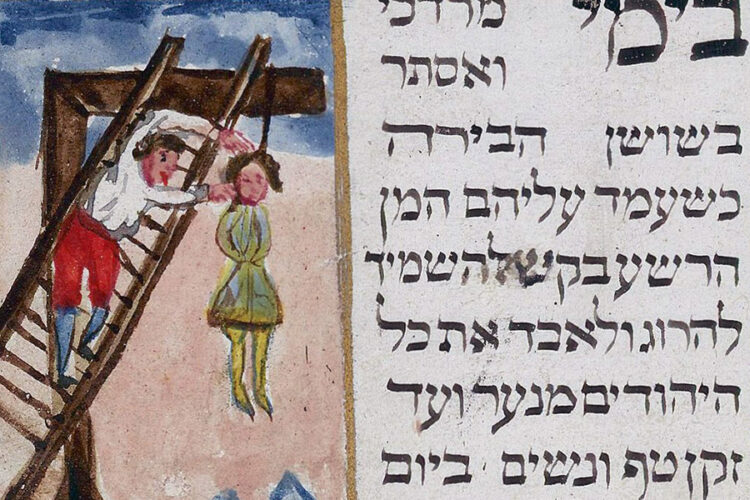 בימי מרדכי
ואסתר
בשושן הבירה
כשעמד עליהם המן
הרשע בקש להשמיד
להרוג ולאבד את כל
היהודים מנער ועד
זקן טף ונשים ביום